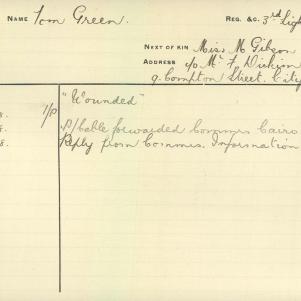 NAME Tom Green. REG. &C. 3rd Lig
NEXT OF KIN Miss M Gibson
ADDRESS c/o Mr F Dickin
9. Compton Street. City
"Wounded"
8. 7/P
8. P/Cable forwaided Commes Cairo
8. Reply from Commes. Information